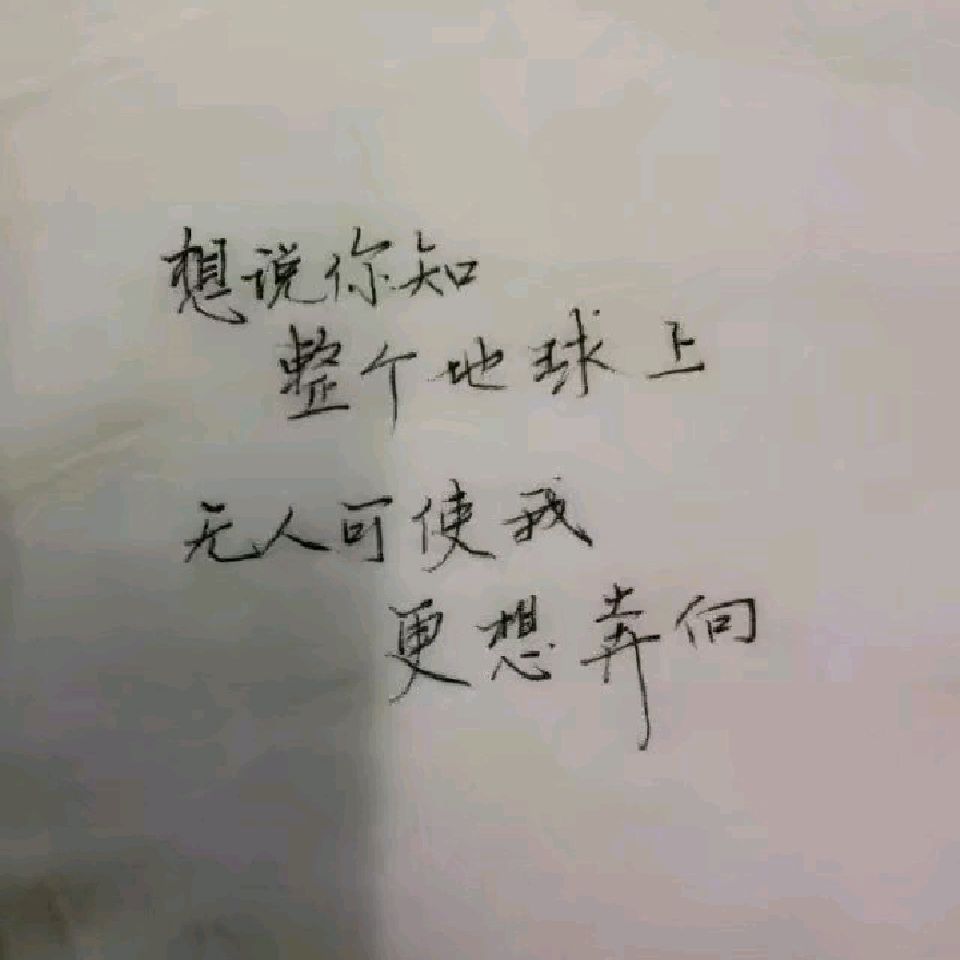 想说你知
整个地球上
无人可使我
更想奔向